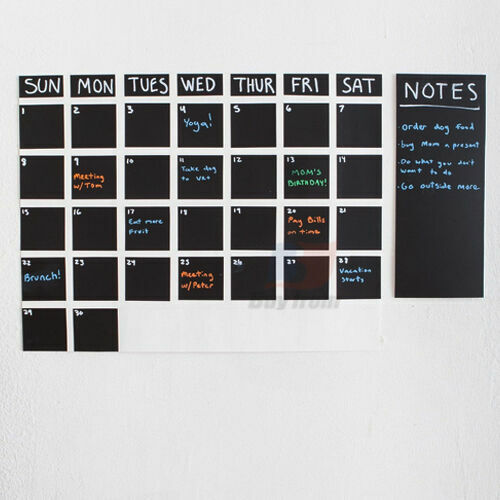 SUN MON TUES WED THUR FRI SAT
1 2 3 4 5 6 7
Yoga!
8 9 10 11 12 13 14
Meeting
w/Tom
Take dog
to vet
MOM'S
BIRTHDAY!
15 16 17 18 19 20 21
Eat more
Fruit
Pay Bills
on time
22 23 24 25 26 27 28
Brunch!
Meeting
w/Peter
Vacation
starts
29 30
NOTES
-order dog food
-buy Mom a present
-Do what you don't
want to do
-Go outside more